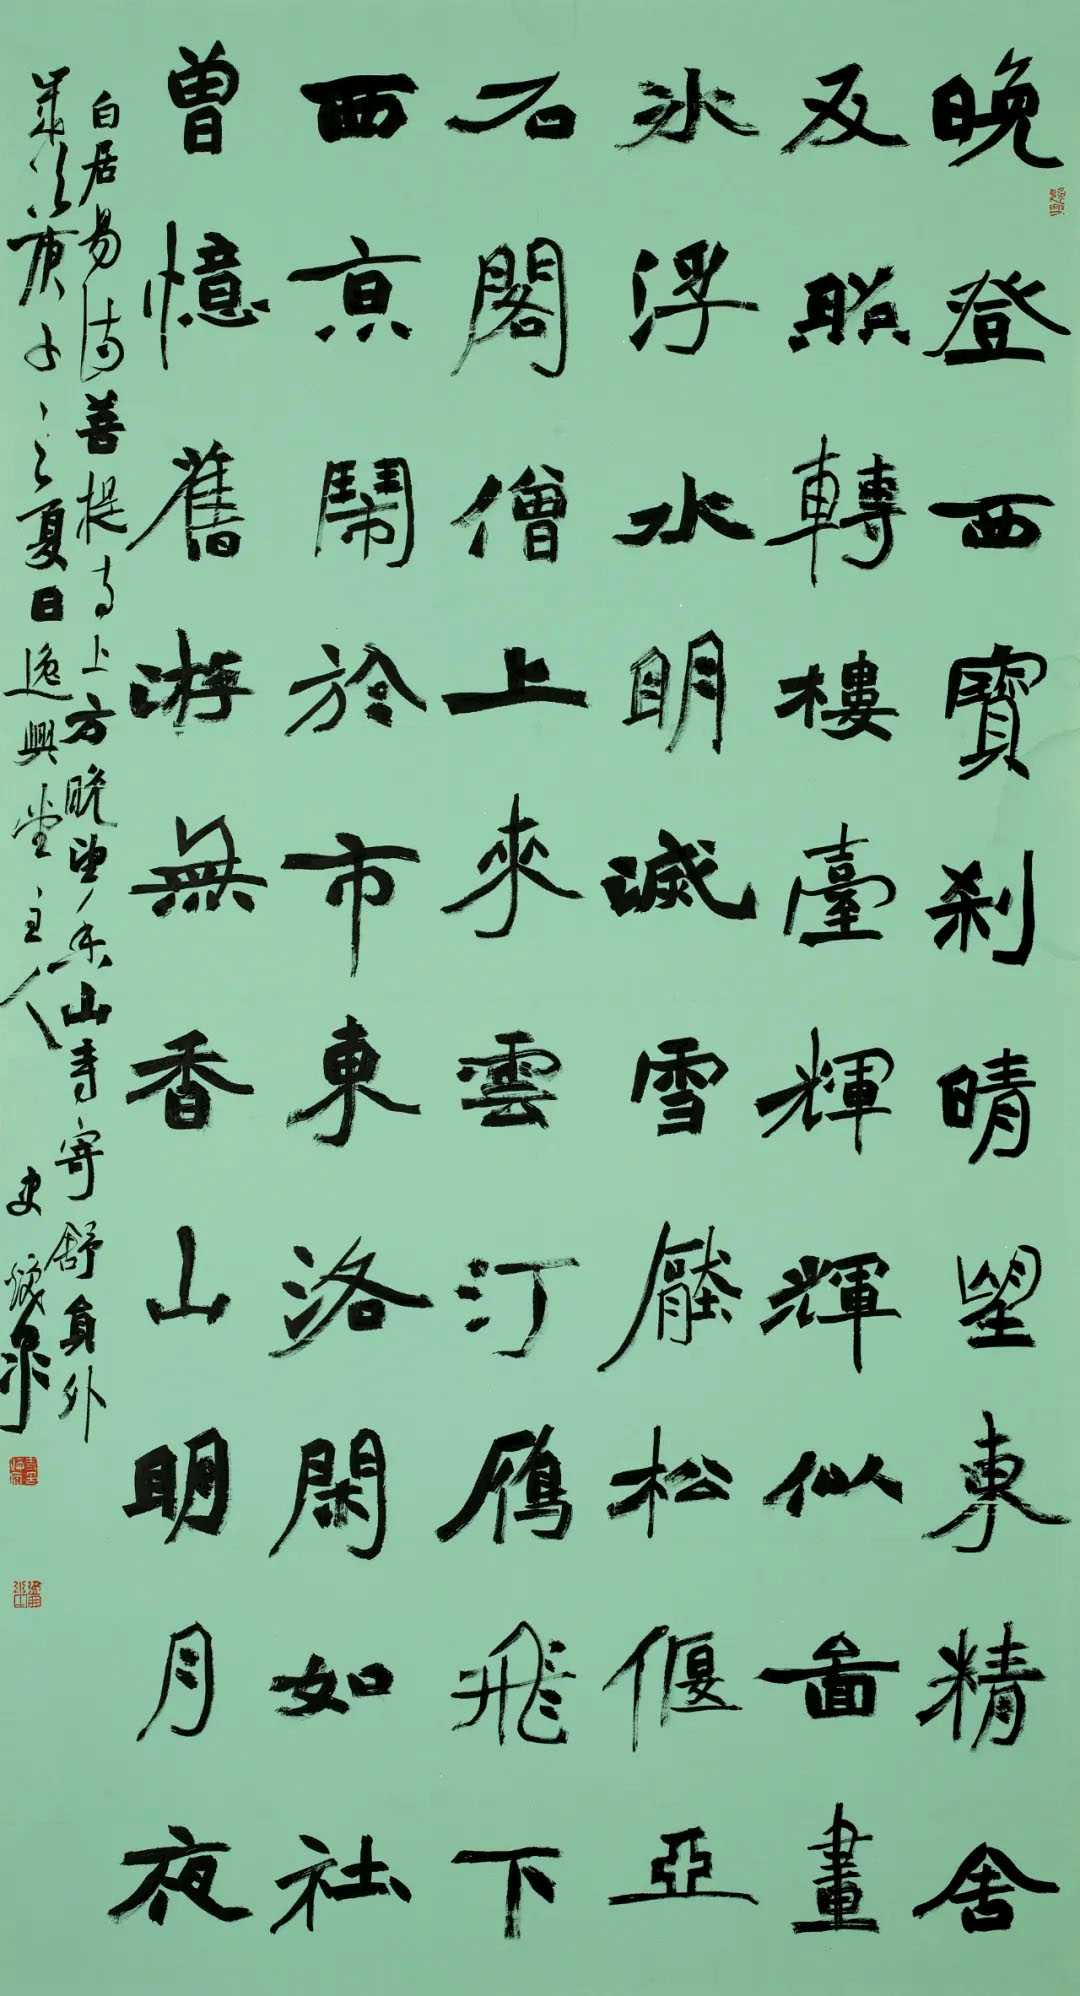 晚登西寶刹晴望東精舍
反照轉樓臺輝輝似圖畫
冰浮水明滅雪壓松偃亞
石閣僧上來雲汀鴈飛下
西京鬧於市東洛閑如社
曾憶舊游無香山明月夜
白居易詩菩提寺上方晚望香山寺寄舒員外
歲次庚子之夏日逸興堂主人史泉